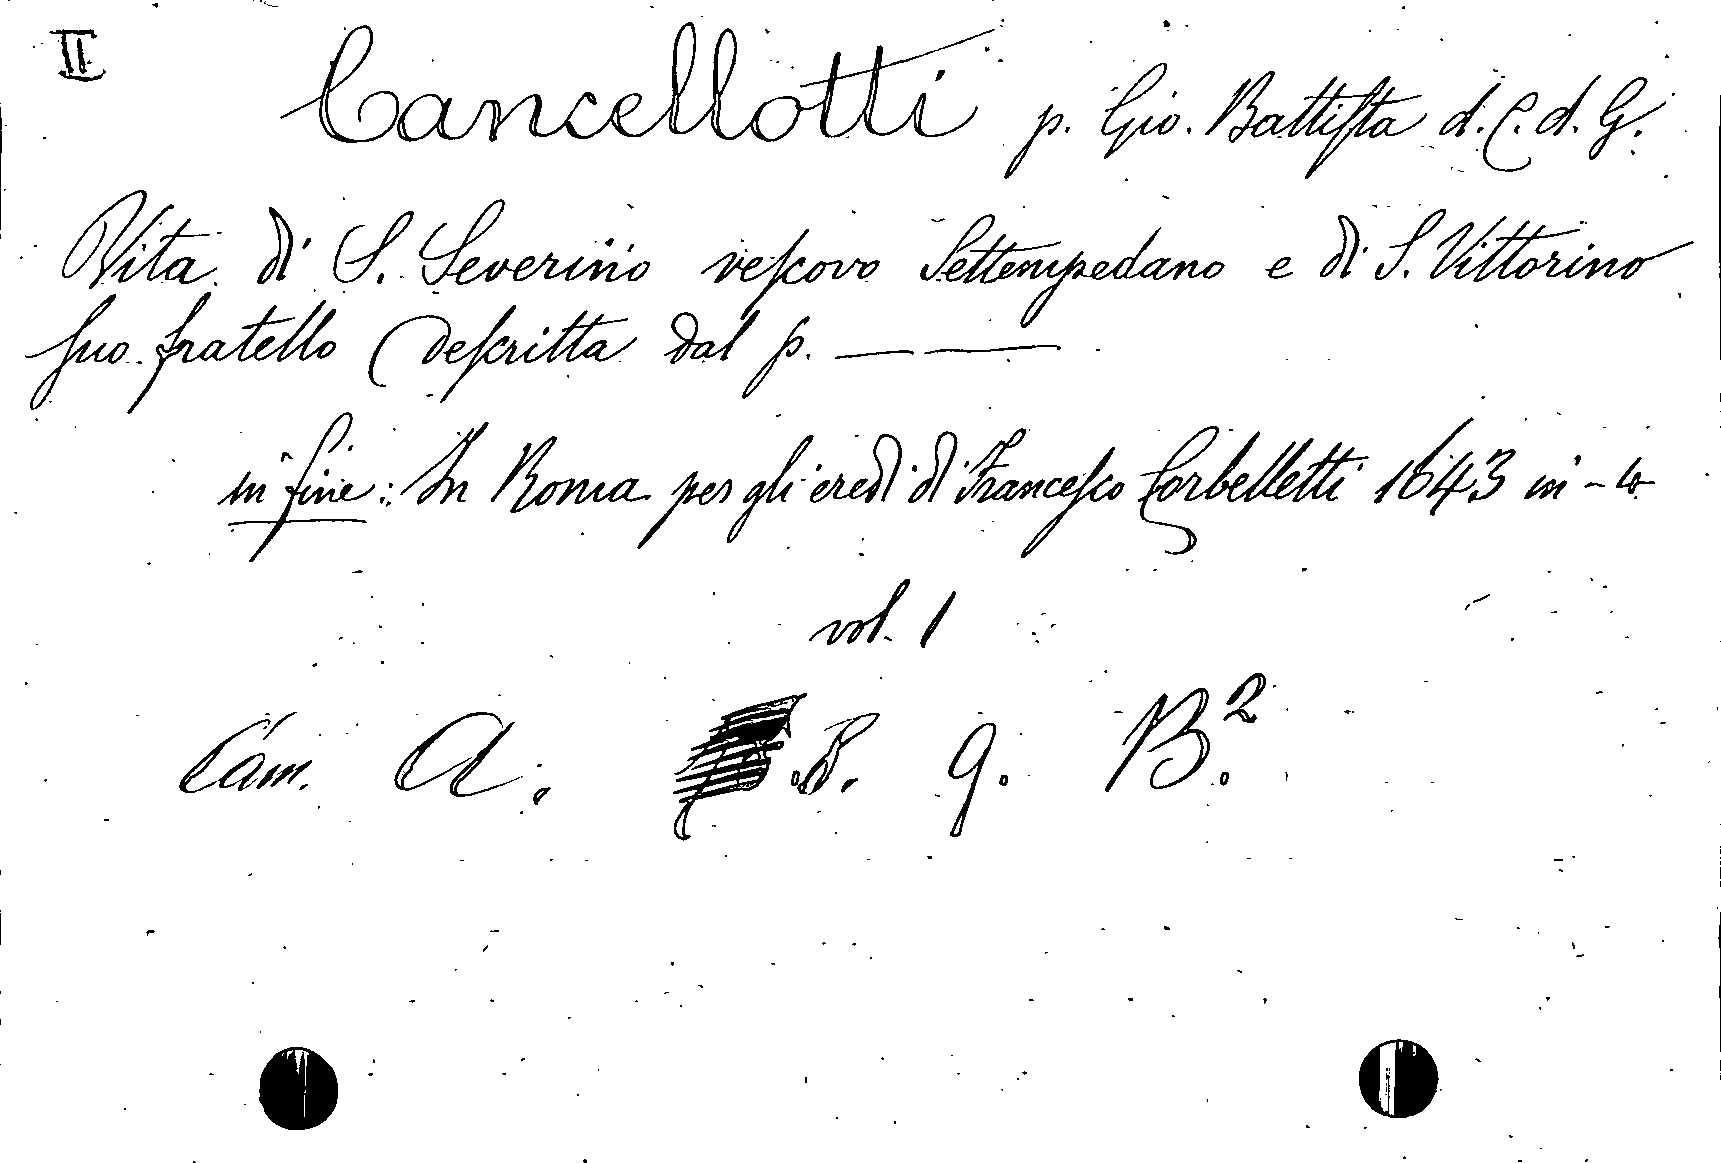 II
Cancellotti p. Gio. Battiſta d. C. d. G.
Vita di S. Severino veſcovo Settempedano e di S. Vittorino
ſuo fratello deſcritta dal p. — —
in fine: In Roma per gli eredi di Franceſco Corbelletti 1643 in-4
vol. 1
Cam. A. B. 9. B².